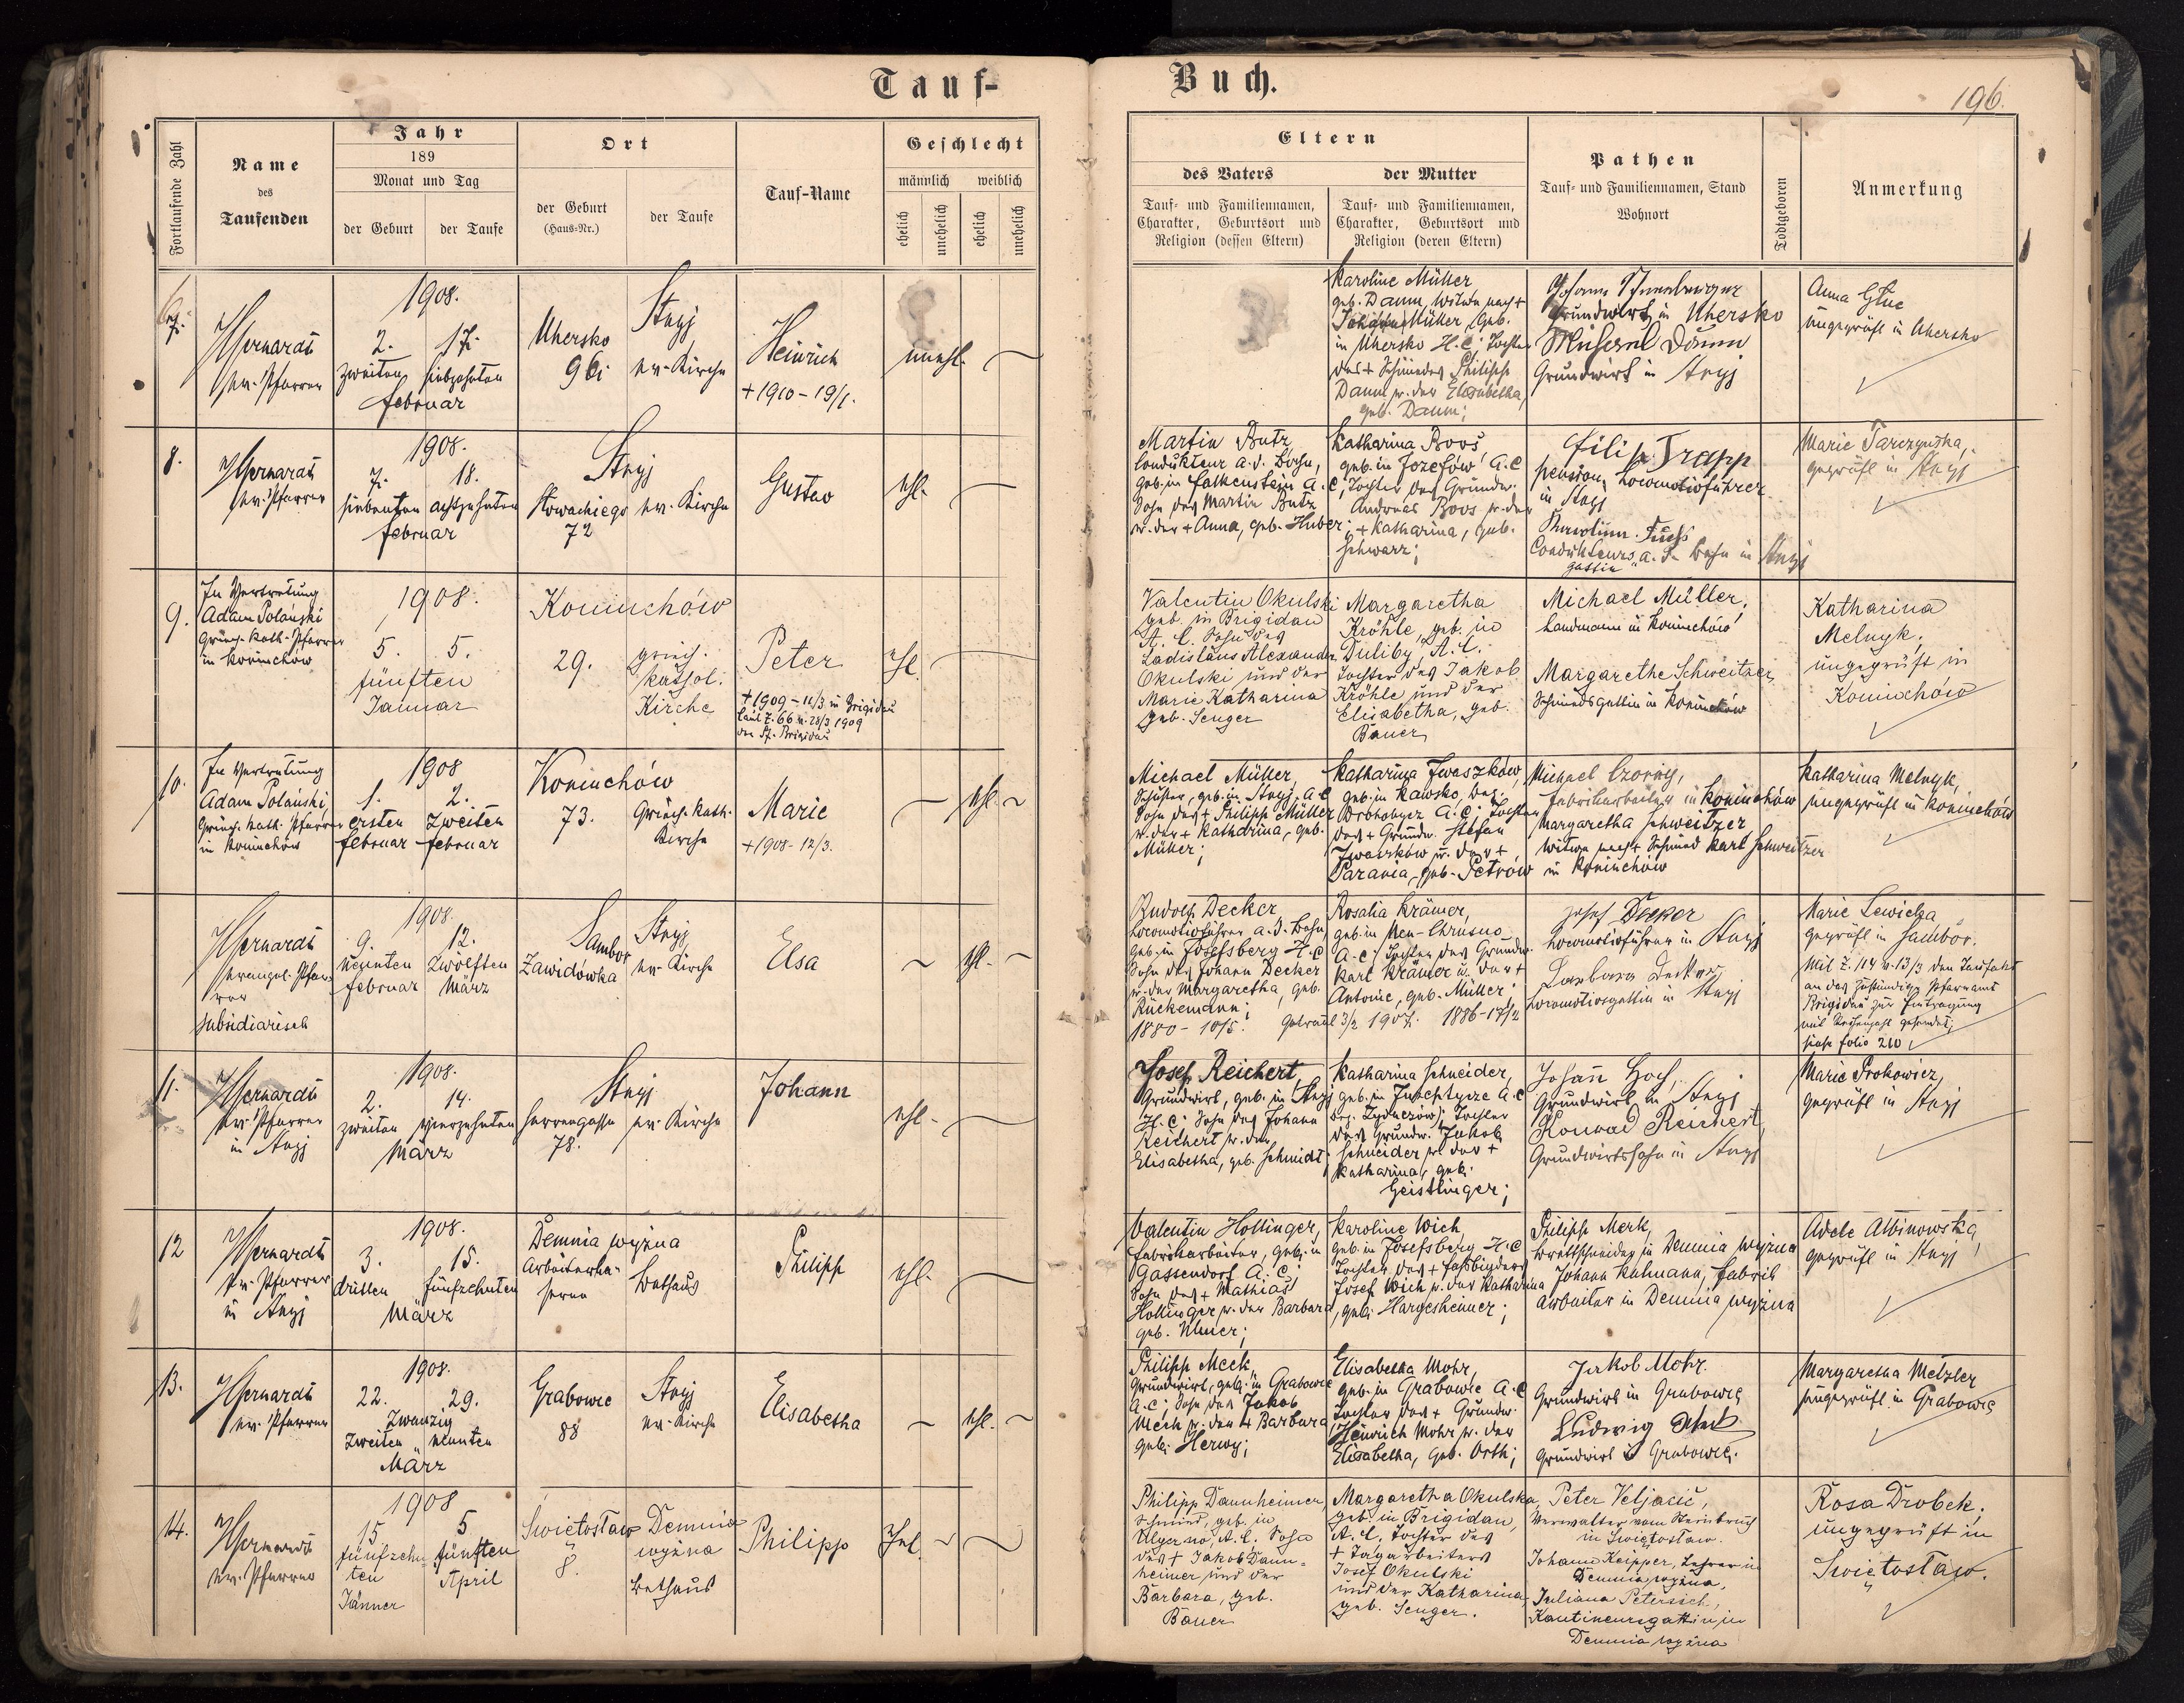 Tauf-
Buch.
196.
Fortlaufende Zahl
Name
des
Taufenden
Jahr
189
Monat und Tag
der Geburt
der Taufe
Ort
der Geburt
(Haus-Nr.)
der Taufe
Tauf-Name
Geschlecht
männlich
weiblich
ehelich
unehelich
ehelich
unehelich
Eltern
des Vaters
Tauf- und Familiennamen,
Charakter, Geburtsort und
Religion (dessen Eltern)
der Mutter
Tauf- und Familiennamen,
Charakter, Geburtsort und
Religion (deren Eltern)
Pathen
Tauf- und Familiennamen, Stand
Wohnort
Todtgeboren
Anmerkung
7.
ev. Pfarrer
1908.
2. 17.
zweiten siebzehnten
Februar
Uhersko
96.
Stryj
ev. Kirche
Heinrich
+ 1910 - 19/1.
unehl.
Karoline Müller,
geb. Daum, Witwe nach +
Müller, geb.
in Uhersko H.C. Tochter
des + Schmiedes Philipp
Daum u. der Elisabetha,
geb. Daum;
Johann
Grundwirt in Uhersko
Daum
Grundwirt in Stryj
Anna
ungeprüft in Uhersko
8.
ev. Pfarrer
1908.
7. 18.
siebenten achtzehnten
Februar
Stryj
Słowackiego
72
ev. Kirche
Gustav
ehl.
Martin Butz,
Condukteur a. d. Bahn,
geb. in Falkenstein A.C.,
Sohn des Martin Butz
u. der + Anna, geb. Huber;
Katharina Boos
geb. in Jozefów A.C
Tochter des Grundw.
Andreas Boos u. der
+ Katharina, geb.
Schwarz;
Filip Trapp
pension. Locomotivführer
in Stryj
Karoline Fuchs
Condukteurs a. d. Bahn in Stryj
gattin
Marie Tarczynska,
geprüft in Stryj
9.
In Vertretung
Adam Polański
Griech. kath. Pfarrer
in Koniuchów
1908.
5. 5.
fünften
Januar
Koniuchów
29.
griech.
kathol.
Kirche
Peter
+ 1909 - 12/3 in Brigidau
laut Z. 66 v. 28/3 1909
Pf. Brigidau
ehl.
Valentin Okulski
geb. in Brigidau
A. C. Sohn des
Ladislaus Alexander
Okulski und der
Marie Katharina
geb. Senger
Margaretha
Kröhle, geb. in
Duliby, A.C.
Tochter des Jakob
Kröhle und der
Elisabetha, geb.
Bauer
Michael Müller,
Landmann in Koniuchów
Margarethe Schweitzer,
Schmiedsgattin in Koniuchów
Katharina
Melnyk,
ungeprüft in
Koniuchów
10.
In Vertretung
Adam Polański,
Griech. kath. Pfarrer
in Koniuchów
1908
1. 2.
ersten zweiten
Februar Februar
Koniuchów
73.
Griech. kath.
Kirche
Marie
+ 1908 - 12/3.
ehl.
Michael Müller,
Schuster, geb. in Stryj, A.C
Sohn des + Philipp Müller
u. der + Katharina, geb.
Müller;
Katharina Iwaszków,
geb. in Kawsko, Bez.
Drohobycz A.C; Tochter
des + Grundw. Stefan
Iwaszków u. der +
Parania, geb. Petrów
Michael Czorny,
Fabrikarbeiter in Koniuchów
Margaretha Schweitzer
Witwe nach + Schmied Karl Schweitzer
in Koniuchów
Katharina Melnyk,
ungeprüft in Koniuchów
evangel. Pfar-
rer
subsidiarisch
1908.
9. 12.
neunten zwölften
Februar März
Sambor
Zawidówka
Stryj
ev. Kirche
Elsa
ehl.
Rudolf Decker
Locomotivführer a. d. Bahn
geb. in Josefsberg H.C
Sohn des Johann Decker
u. der Margaretha, geb.
Rückemann;
1880 - 10/5.
Rosalia Krämer,
geb. in Neu-Chrusno
A.C; Tochter des Grundw.
Karl Krämer u. der +
Antonie, geb. Müller;
Getraut 3/2 1907. 1886 - 17/12
Josef Decker
Locomotivführer in Stryj
Barbara Decker
Locomotivsgattin in Stryj
Marie Lewicka
geprüft in Sambor.
Mit Z. 114 v. 13/3 den Taufakt
an das zuständige Pfarramt
Brigidau zur Eintragung
mit Reihenzahl gesendet;
siehe folio 210
11.
ev. Pfarrer
in Stryj
1908.
2. 14.
zweiten vierzehnten
März
Stryj
Herrengasse
78.
ev. Kirche
Johann
ehl.
Josef Reichert,
Grundwirt, geb. in Stryj
H.C; Sohn des Johann
Reichert u. der
Elisabetha, geb. Schmidt;
Katharina Schneider,
geb. in A.C
Bez. Żydaczów; Tochter
des Grundw. Jakob
Schneider u. der +
Katharina, geb.
Geistlinger;
Johann Hoch,
Grundwirt in Stryj
Konrad Reichert,
Grundwirtssohn in Stryj
Marie Prokowicz,
geprüft in Stryj
12
ev. Pfarrer
in Stryj
1908.
3. 15.
dritten fünfzehnten
März
Demnia wyżna
Arbeiterka-
serne
Bethaus
Philipp
ehl.
Valentin Hollinger,
Fabriksarbeiter, geb. in
Gassendorf A.C;
Sohn des + Mathias
Hollinger u. der Barbara
geb. Maier;
Karoline Wich
geb. in Josefsberg H.C
Tochter des + Fassbinders
Josef Wich u. der Katharina
, geb. Hargesheimer;
Philipp Merk,
Brettschneider in Demnia wyżna
Johann Kulmann, Fabriks
arbeiter in Demnia wyżna
Adele Albinowska,
geprüft in Stryj
13.
ev. Pfarrer
1908.
22. 29.
Zwanzig
zweiten " neunten
März
Grabowce
88
Stryj
ev. Kirche
Elisabetha
ehl.
Philipp Meck,
Grundwirt, geb. in Grabowce
A.C; Sohn des Jakob
Meck u. der + Barbara
geb. Herwy;
Elisabetha Mohr,
geb. in Grabowce A.C
Tochter des + Grundw.
Heinrich Mohr u. der
Elisabetha, geb. Orth;
Jakob Mohr.
Grundwirt in Grabowce
Ludwig
Grundwirt in Grabowce.
Margaretha Metzler
ungeprüft in Grabowce
14.
ev. Pfarrer
1908
15 5
fünfzehn- fünften
ten April
Jänner
Świętosław
8.
Demnia
wyżna
Bethaus
Philipp
Ehel.
Philipp Dannheimer,
Schmied, geb. in
A.C. Sohn
des + Jakob Dann-
heimer und der
Barbara, geb.
Bauer
Margaretha Okulska,
geb. in Brigidau,
A.C, Tochter des
+ Tagarbeiters
Josef Okulski
und der Katharina,
geb. Senger.
Peter Veljacić,
Verwalter vom Steinbruch
in Świętosław.
Johann Keipper, Lehrer in
Demnia wyżna,
Juliana Petersich,
Kantineursgattin in
Demnia wyżna
Rosa Drobek,
ungeprüft in
Świętosław.